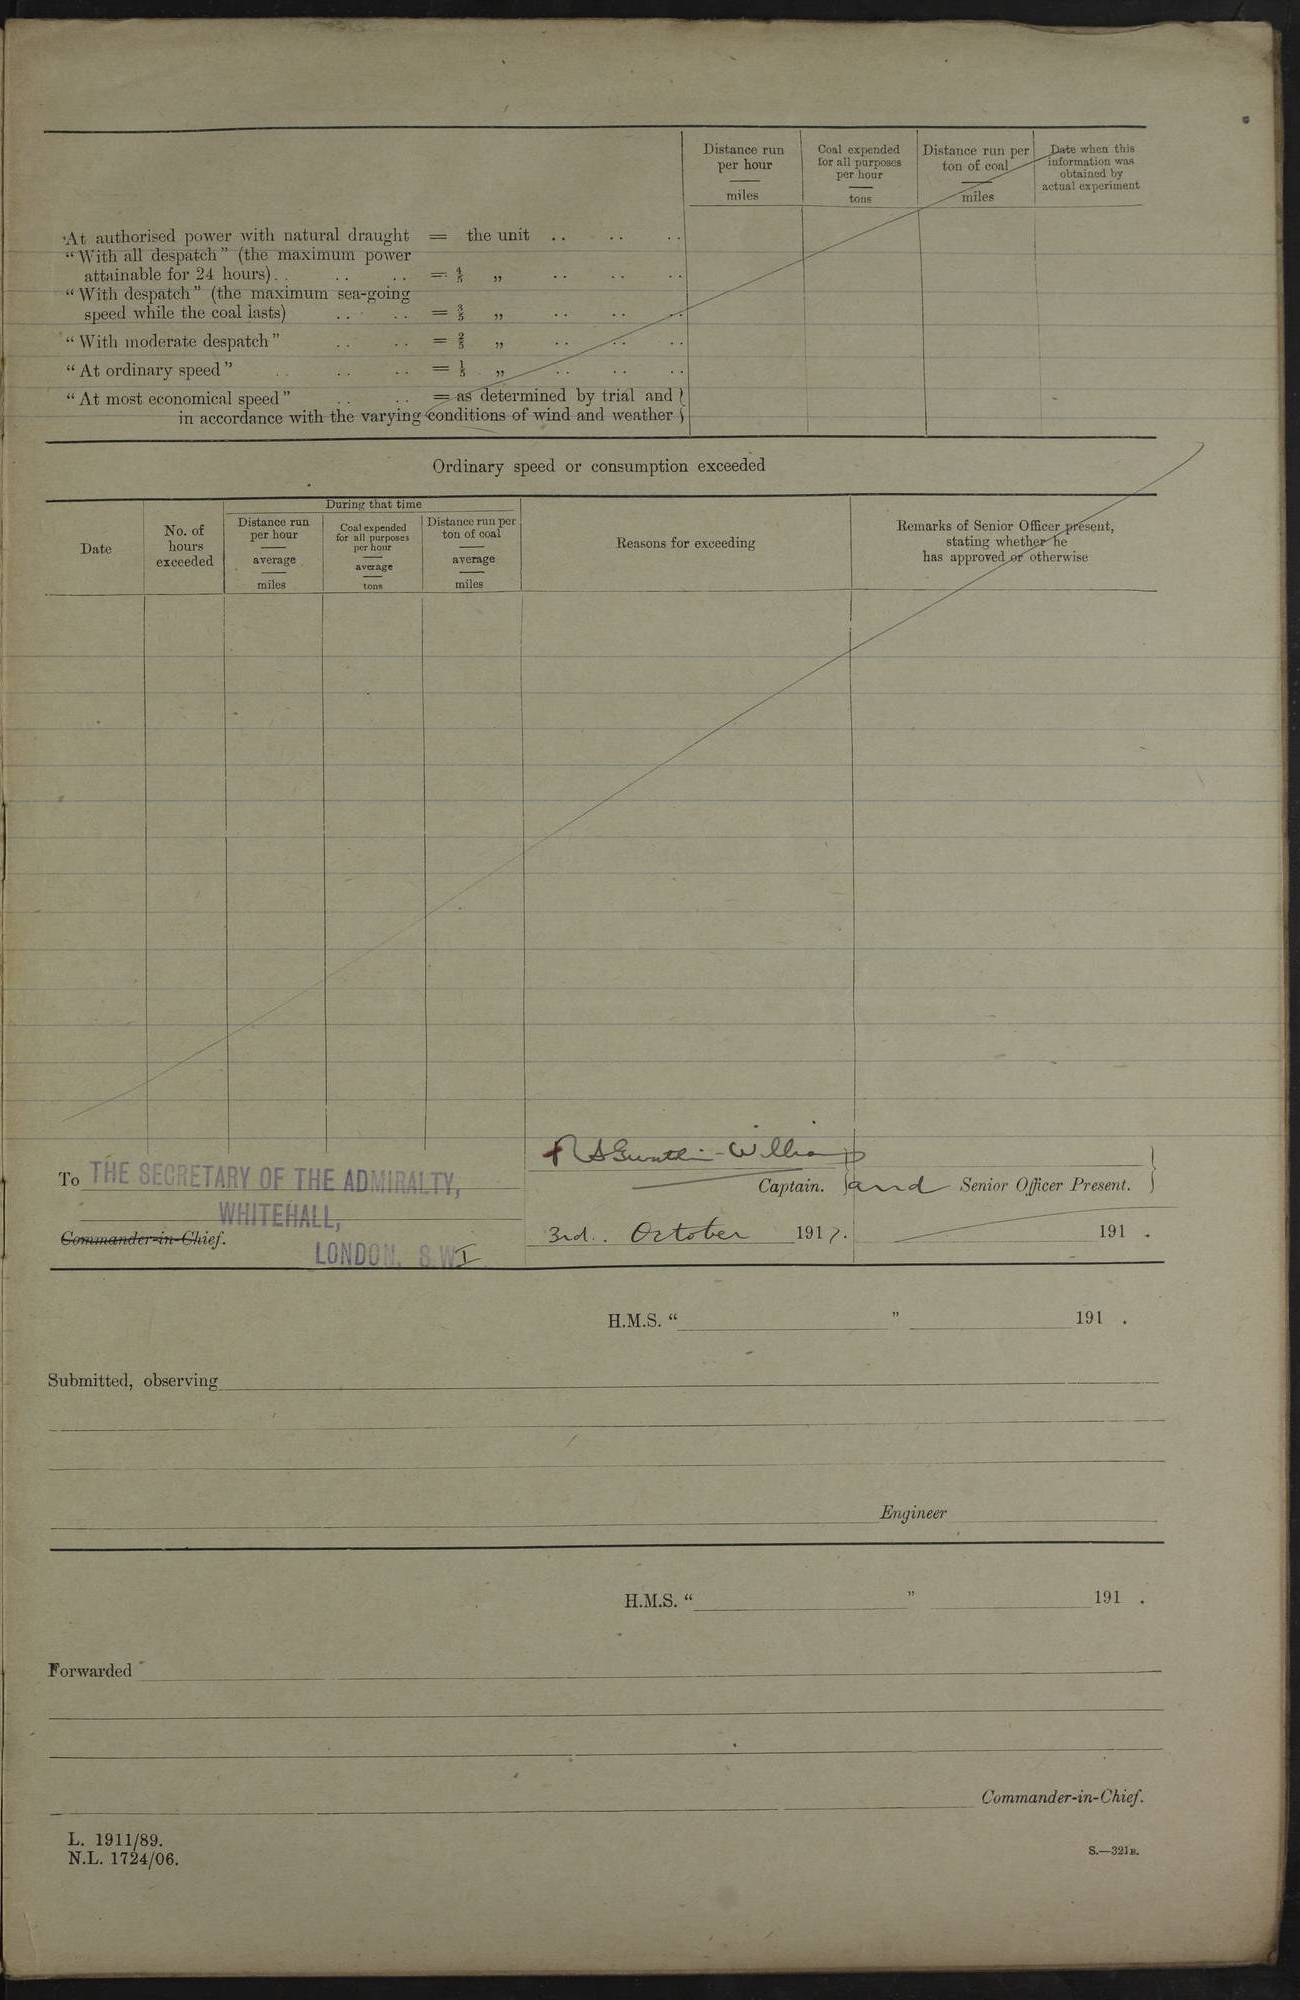 Distance run per hour miles
Coal expended for all purposes per hour tons
Distance run per ton of coal miles
Date when this information was obtained by actual experiment
At authorised power with natural draught = the unit .. .. ..
"With all despatch" (the maximum power
attainable for 24 hours).. .. .. = 4/5 „ .. .. ..
"With despatch" (the maximum sea-going
speed while the coal lasts) .. .. = 3/5 „ .. .. ..
"With moderate despatch" .. .. = 2/5 „ .. .. ..
"At ordinary speed" .. .. .. = 1/5 „ .. .. ..
"At most economical speed" .. .. = as determined by trial and
in accordance with the varying conditions of wind and weather
Ordinary speed or consumption exceeded
Date
No. of hours exceeded
During that time
Distance run per hour average miles
Coal expended for all purposes per hour average tons
Distance run per ton of coal average miles
Reasons for exceeding
Remarks of Senior Officer present, stating whether he has approved or otherwise
To THE SECRETARY OF THE ADMIRALTY,
WHITEHALL,
Commander-in-Chief.
LONDON, S.W.1
Captain. and Senior Officer Present.
3rd. October 1917. 191 .
H.M.S. " " 191 .
Submitted, observing
Engineer
H.M.S. " " 191 .
Forwarded
Commander-in-Chief.
L. 1911/89.
N.L. 1724/06.
S.—321B.